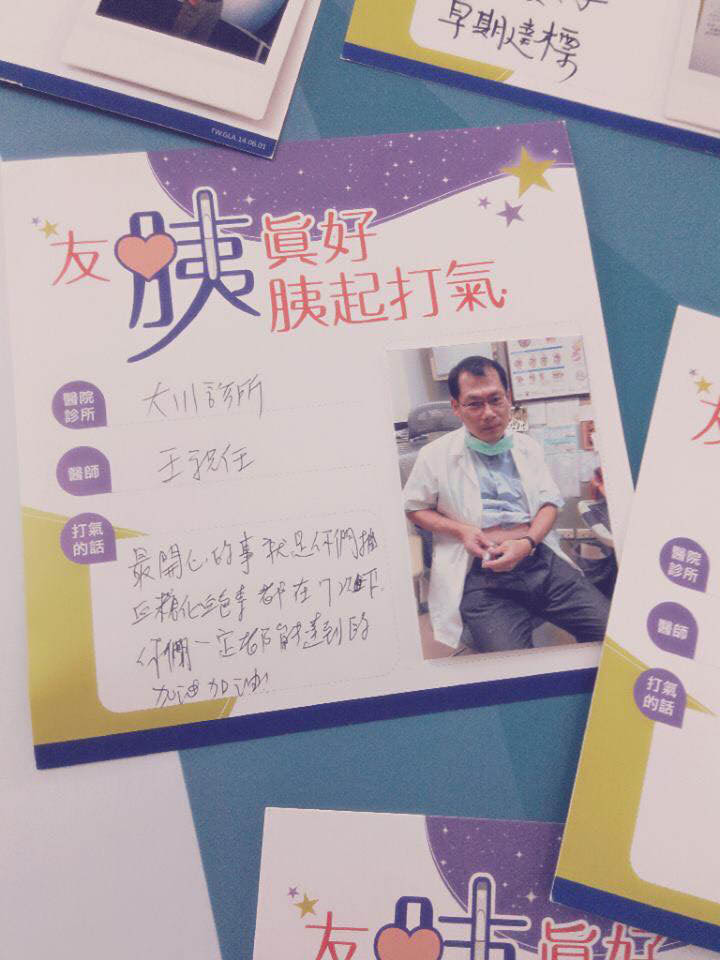 早期達標
TW.GLA.14.06.01
友胰眞好
胰起打氣
醫院
診所
大川診所
醫師
王 任
打氣
的話
最開心的事就是你們抽
血糖化血色素都在7以下
你們一定都能達到的
加油加油!
友
醫院
診所
醫師
打氣
的話
友胰眞好